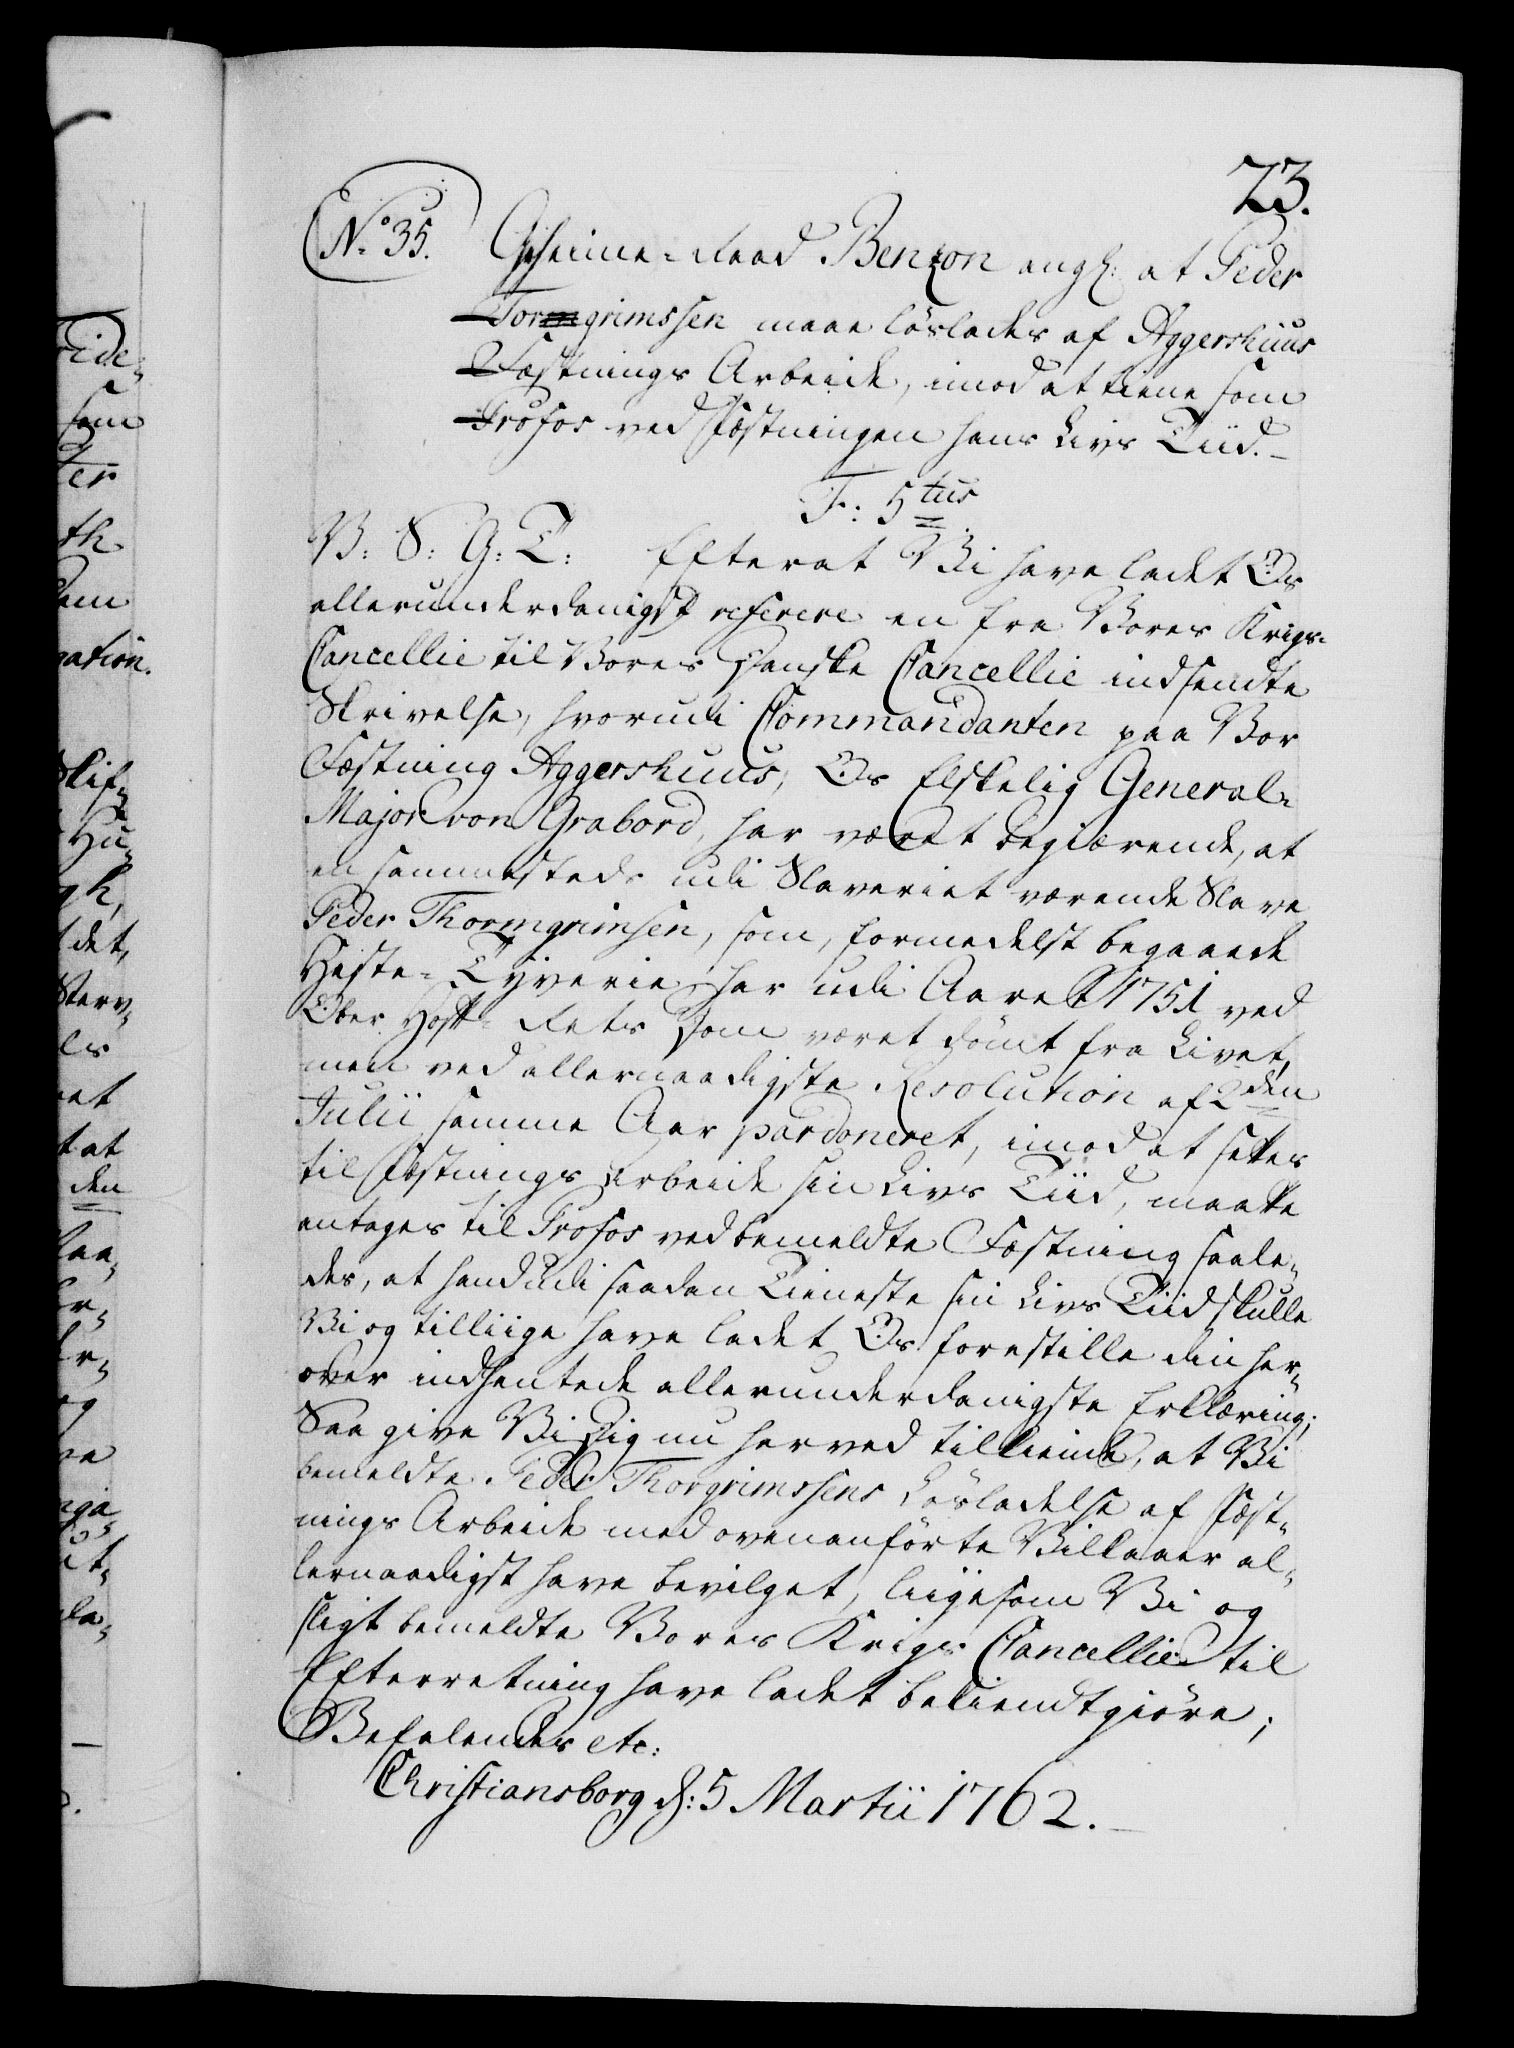 23.
No. 35. Geheime-Raad Benzon angl: at Peder
Tormgrimssen maae löslades af Aggershuus
Fæstnings Arbeide, imod at tiene som
Profos ved Fæstningen hans Livs Tiid.
F: 5tus
V: S: G: T: Efterat Vi have ladet Os
allerunderdanigst referere en fra Vores Krigs-
Cancellie til Vores Danske Cancellie indsendte
Skrivelse, hvorudi Commandanten paa Vor
Fæstning Aggershuus, Os Elskelig General-
Major von Grabord, har været begiærende, at
en sammesteds udi Slaveriet værende Slave
Peder Thormgrimsen, som, formedelst begaaede
Heste-Tyverie har udi Aaret 1751 ved
Ober Hoff-Rets Dom været dömt fra Livet,
men ved allernaadigste Resolution af 2den
Julii samme Aar pardoneret, imod at settes
til Fæstnings Arbeide sin Livs Tiid, maatte
antages til Profos ved bemeldte Fæstning saale-
des, at hand udi saadan Tieneste sin Livs Tiid skulle
Vi og tilliige have ladet Os forestille din her-
over indhentede allerunderdanigste Erklæring;
Saa give Vi Dig nu herved tilkiende, at Vi
bemeldte Peder Thorgrimssens Lösladelse af Fæst-
nings Arbeide med ovenanförte Vilkaaer al-
lernaadigst have bevilget, liigesom Vi og
sligt bemeldte Vores Krigs Cancellie til
Efterretning have ladet bekiendtgiöre;
Befalendes etc:
Christiansborg d: 5 Martii 1762.